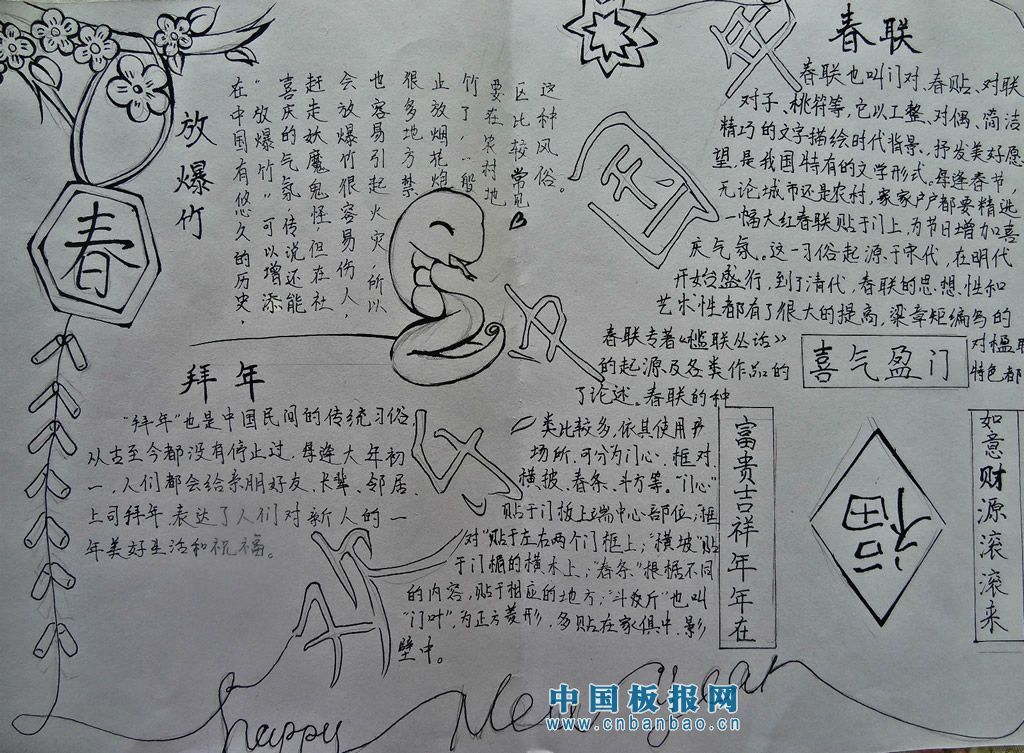 春
放爆竹
在中国有悠久的历史,
“放爆竹”可以增添
喜庆的气氛,传说还能
赶走妖魔鬼怪,但在社
会放爆竹很容易伤人,
也容易引起火灾,所以
很多地方禁
止放烟花
竹了,一般
要在农村地
区比较常见
这种风俗。
拜年
“拜年”也是中国民间的传统习俗,
从古至今都没有停止过,每逢大年初
一,人们都会给亲朋好友、长辈、邻居、
上司拜年,表达了人们对新人的一
年美好生活和祝福。
春联
春联也叫门对、春贴、对联
对子、桃符等,它以工整、对偶、简洁
精巧的文字描绘时代背景、抒发美好愿
望,是我国特有的文学形式。每逢春节,
无论城市还是农村,家家户户都要精选
一幅大红春联贴于门上,为节日增加喜
庆气氛。这一习俗起源于宋代,在明代
开始盛行,到了清代,春联的思想性和
艺术性都有了很大的提高,梁章矩编写的
春联专著《槛联丛话》对楹联
的起源及各类作品的特色都
了论述。春联的种
类比较多,依其使用
场所,可分为门心、框对、
横披、春条、斗方等。“门心”
贴于门板上端中心部位,“框
对”贴于左右两个门框上;“横坡”贴
于门楣的横木上;“春条”根据不同
的内容,贴于相应的地方;“斗斤”也叫
“门叶”,为正方菱形,多贴在家俱中、影
壁中。
喜气盈门
富贵吉祥年年在
福
如意财源滚滚来
happy New year
中国板报网
www.cnbanbao.cn